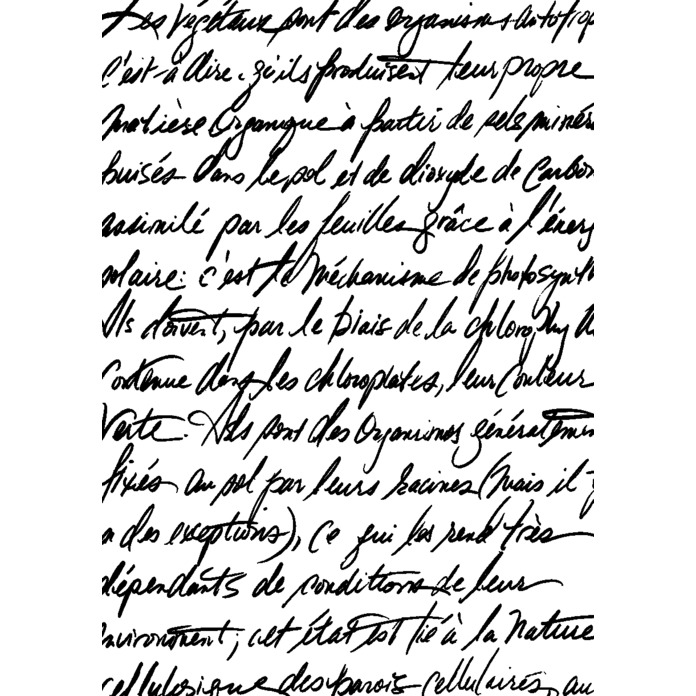 Les végétaux sont des organismes autotrop
C'est-à-dire. qu'ils produisent leur propre
matière Organique à partir de sels minér
puisés dans le sol et de dioxyde de Carbon
assimilé par les feuilles grâce à l'énerg
solaire: c'est le Méchanisme de photosynth
Ils doivent, par le biais de la chlorophyll
Contenue dans les chloroplastes, leur Couleur
Verte. Ils sont des Organismes généralemen
fixés au sol par leurs racines (Mais il y
a des exceptions), Ce qui les rend très
dépendants de conditions de leur
environnement; cet état est lié à la Nature
cellulosique des parois Cellulaires, au